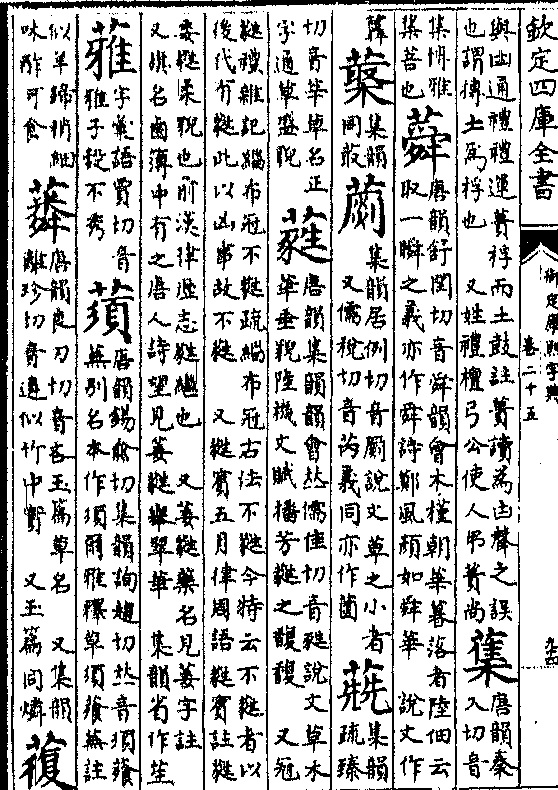 欽定四庫全書
御定康熙字典
卷二十五
與凷通禮禮運蕢桴而土鼓註蕢讀為凷聲之誤
也謂摶土為桴也 又姓禮檀弓公使人弔蕢尚
唐韻秦
入切音
集博雅
集菩也
蕣
唐韻舒閏切音舜韻會木槿朝華暮落者陸佃云
取一瞬之義亦作舜詩鄭風顔如舜華 說文作
集韻
同菆
集韻居例切音罽說文草之小者
又儒稅切音芮義同亦作
集韻
疏臻
切音莘草名正
字通草盛貌
蕤
唐韻集韻韻會𠀤儒佳切音緌說文草木
華垂貌陸機文賦播芳蕤之馥馥 又冠
蕤禮雜記緇布冠不蕤疏緇布冠古法不蕤今特云不蕤者以
後代有蕤此以凶事故不蕤 又蕤賔五月律周語蕤賔註蕤
委蕤柔貌也前漢律歷志蕤繼也 又萎蕤藥名見萎字註
又旗名鹵簿中有之唐人詩望見葳蕤舉翠華 集韻省作苼
蕥
字彙語賈切音
雅子投不秀
蕦
唐韻錫俞切集韻詢趨切𠀤音須薞
蕪別名本作須爾雅釋草須薞蕪註
似羊蹄稍細
味酢可食
唐韻良刃切音吝玉篇草名 又集韻
離珍切音遴似竹中實 又玉篇同燐
蕧